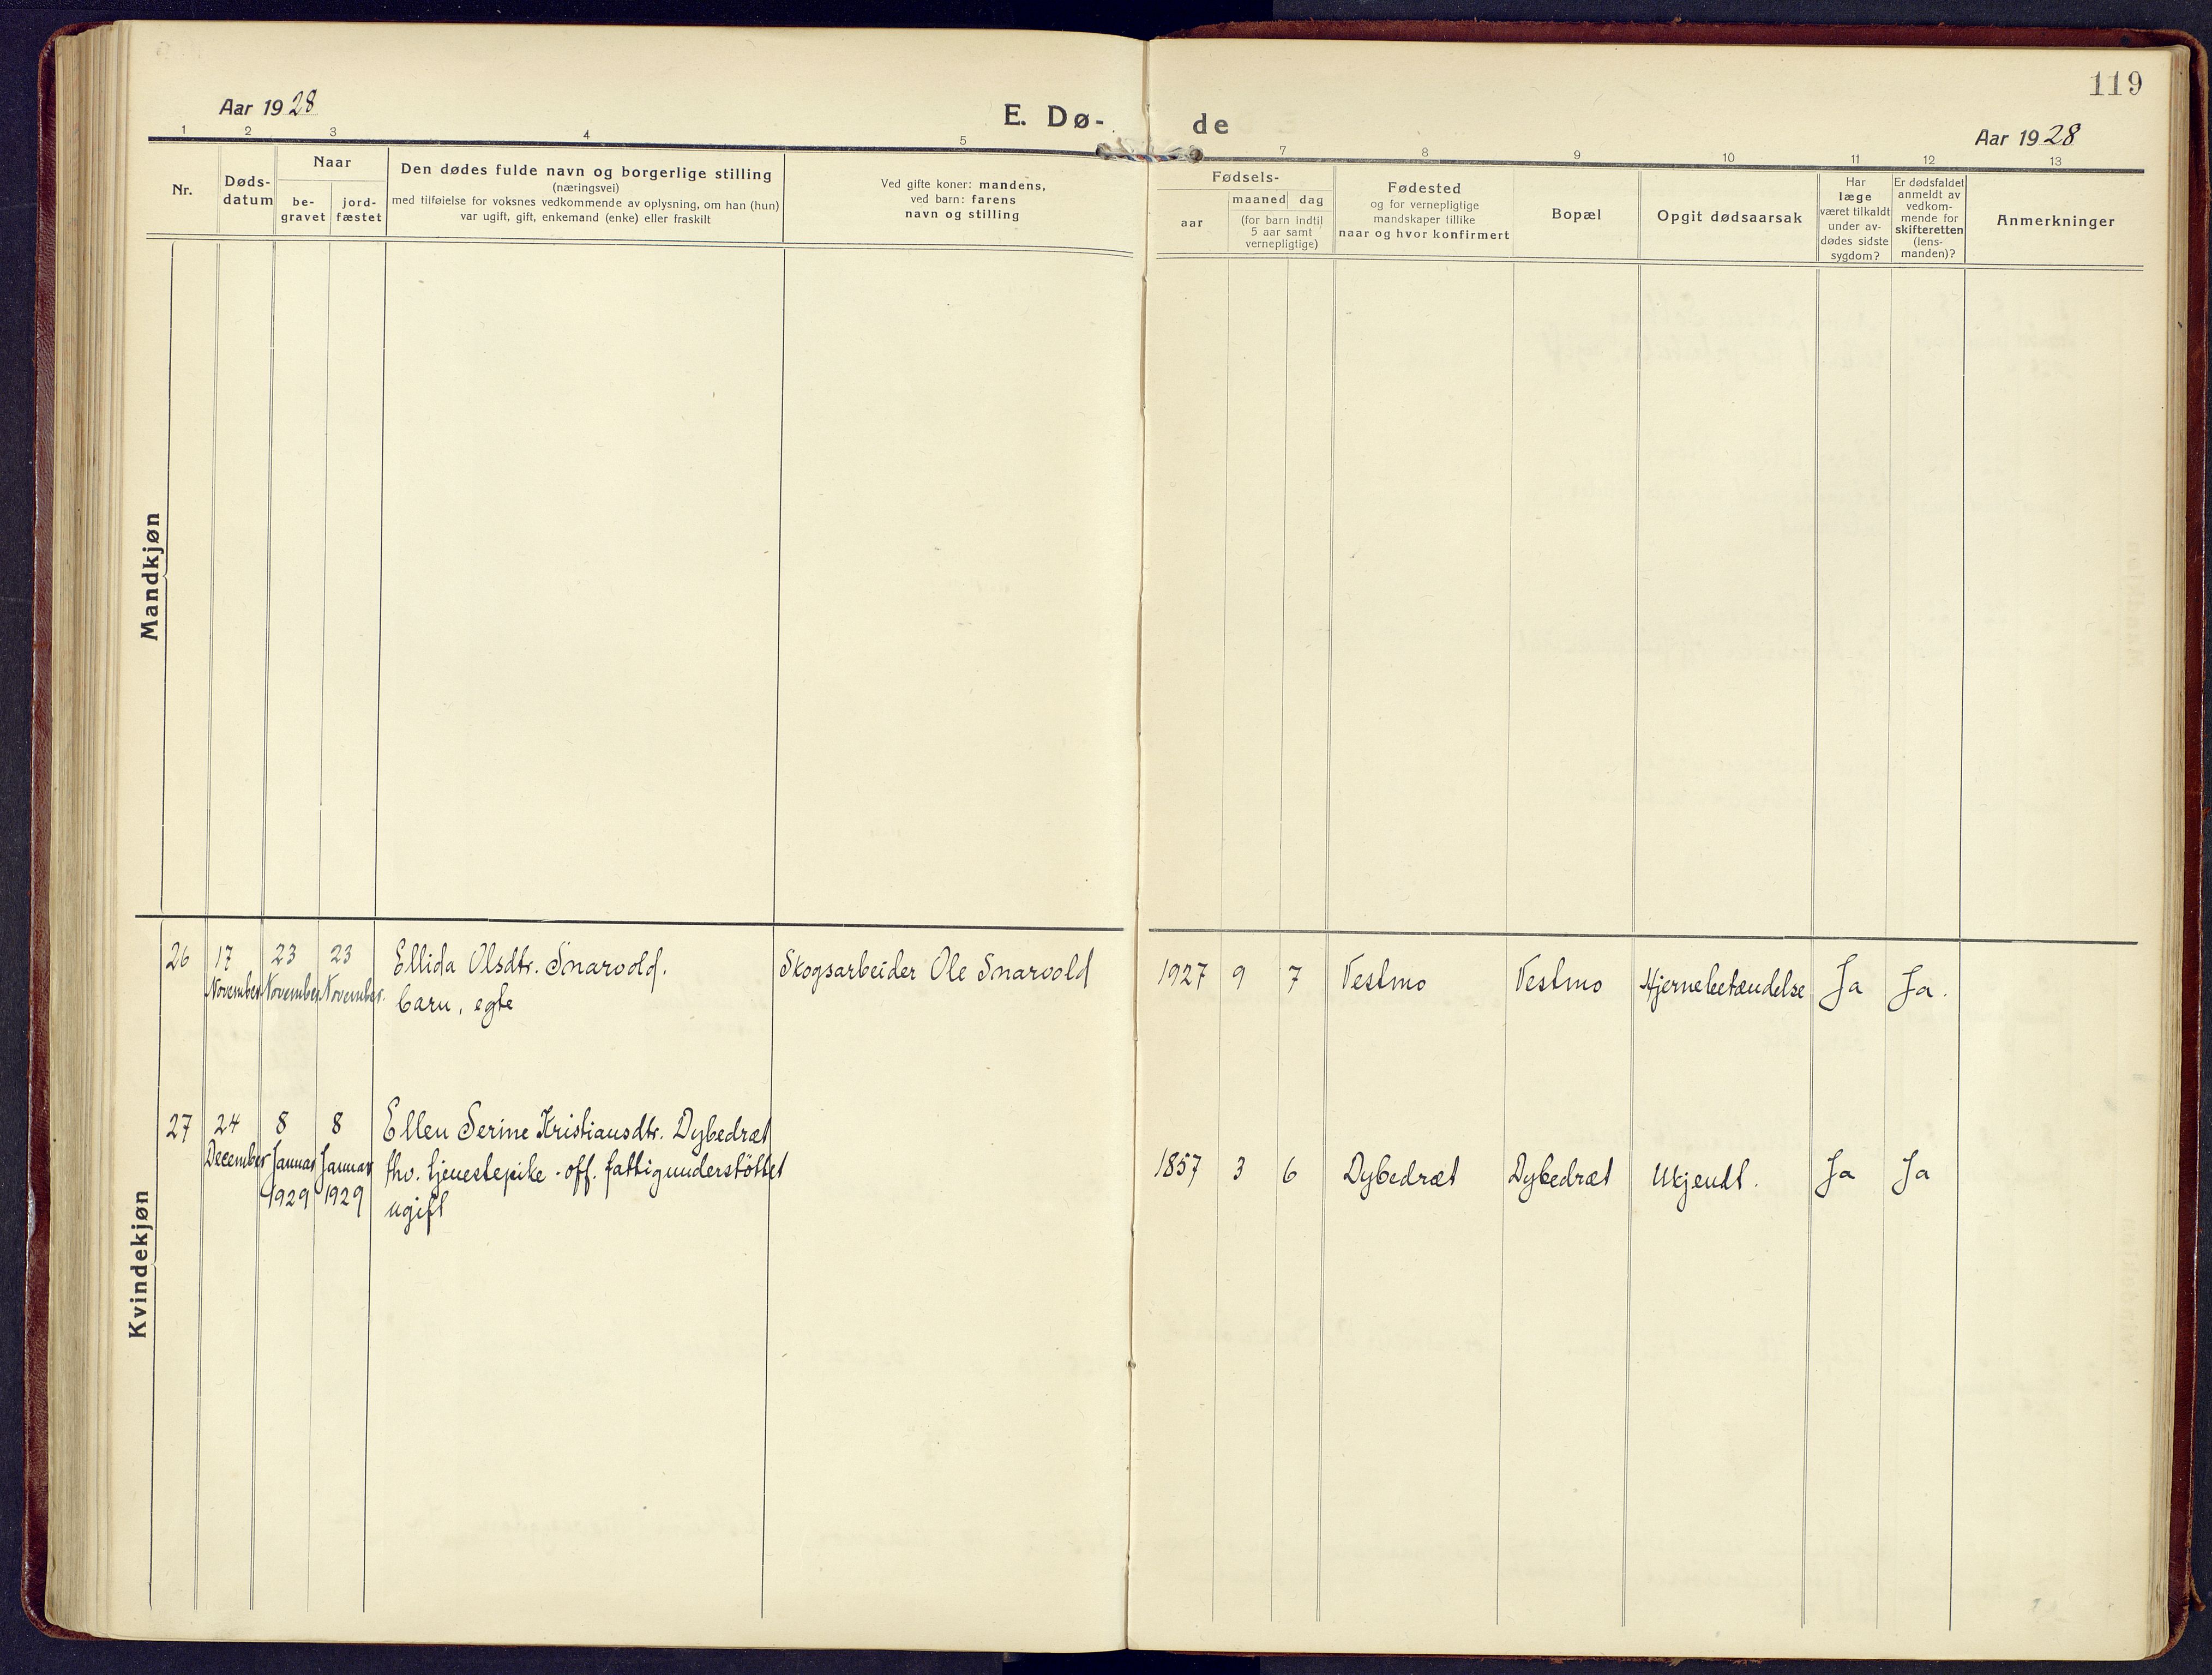 119
Aar 1928
E. Dø-
de
Aar 1928
1 2 3 4 5 7 8 9 10 11 12 13
Nr.
Døds-
datum
Naar
be-
gravet
jord-
fæstet
Den dødes fulde navn og borgerlige stilling
(næringsvei)
med tilføielse for voksnes vedkommende av oplysning, om han (hun)
var ugift, gift, enkemand (enke) eller fraskilt
Ved gifte koner: mandens,
ved barn: farens
navn og stilling
Fødsels-
aar
maaned dag
(for barn indtil
5 aar samt
vernepligtige)
Fødested
og for vernepligtige
mandskaper tillike
naar og hvor konfirmert
Bopæl
Opgit dødsaarsak
Har
læge
været tilkaldt
under av-
dødes sidste
sygdom?
Er dødsfaldet
anmeldt av
vedkom-
mende for
skifteretten
(lens-
manden)?
Anmerkninger
Mandkjøn
Kvindekjøn
26
17
November
23
November
23
November.
Ellida Olsdtr. Snarvold.
barn, egte
Skogsarbeider Ole Snarvold
1927 9 7 Vestmo Vestmo Hjernebetændelse Ja Ja.
27
24
December
8
Januar
1929
8
Januar
1929
Ellen Serine Kristiansdtr. Dybedræt
fhv. tjenestepike - off. fattigunderstöttet
ugift
1857 3 6 Dybedræt Dybedræt Ukjendt. Ja Ja